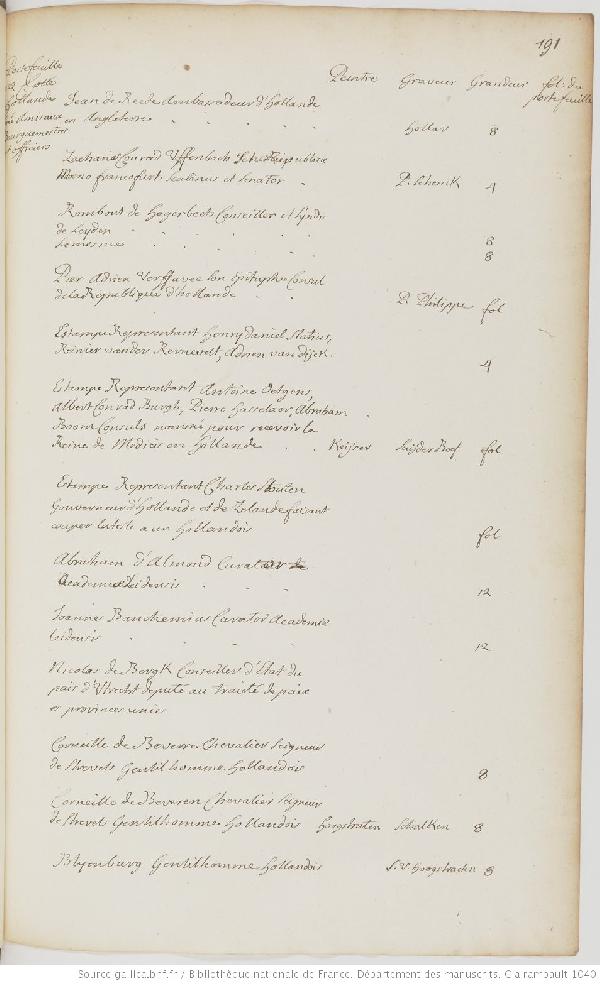 191
Portefeuille
Hollande
officiers
Peintre Graveur Grandeur fol. du
portefeuille
Jean de Reede Ambassadeur d'Hollande
en Angleterre
Hollar 8
Zacharias Conrad Uffenbach
Moeno francofurt. Scabinus et Senator P. Schenck 4
Rombout de Hogerbeets Conseiller et Syndic
de Leyden 8
Le mesme 8
Pier Adrien Verffuwee Consul
de la Republique d'hollande P. Philippe fol
Estampe Representant Henry Daniel Slatius,
Reinier vander Bernevelt, Adrien van dijck. 4
Estampe Representant Antoine Oetgens,
Albert Conrad Burgh, Pierre Hasselaer, Abraham
Boom Consuls pour recevoir la
Reine de Medicis en Hollande Keijser Suijderhoef fol
Estampe Representant Charles
Gouverneur d'Hollande et de Zelande faisant
couper la teste a un Hollandois fol
Abraham d'Almond Curator
Academiae Leidensis 12
Joannes Bauchemius Curator Academiae
Leidensis 12
Nicolas de Borgk Conseiller d'Etat du
pais d'Utrecht deputé au traité de paix
et provinces unies
Corneille de Beveren Chevalier Seigneur
de Strevels Gentilhomme Hollandois 8
Corneille de Beveren Chevalier Seigneur
de Strevel Gentilhomme Hollandois Hoogstraten Schalken 8
Blyenburg Gentilhomme Hollandois S. V. Hoogstraeten 8
Source gallica.bnf.fr / Bibliothèque nationale de France. Département des manuscrits. Clairambault 1040